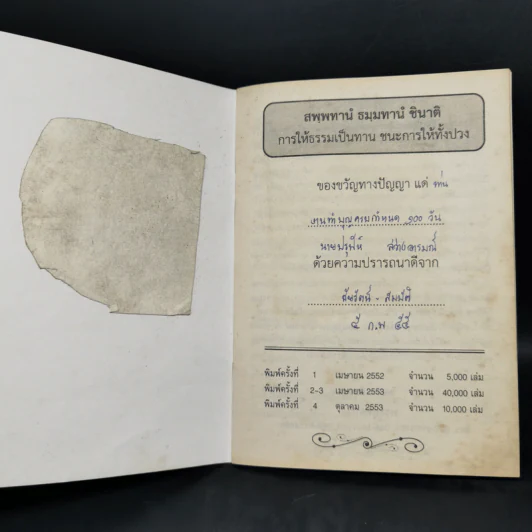 สพฺพทานํ ธมฺมทานํ ชินาติ
การให้ธรรมเป็นทาน ชนะการให้ทั้งปวง
ของขวัญทางปัญญา แด่ ท่าน
งานทำบุญครบกำหนด ๑๐๐ วัน
ด้วยความปรารถนาดีจาก
๕ ก.พ ๕๕
พิมพ์ครั้งที่ 1 เมษายน 2552 จำนวน 5,000 เล่ม
พิมพ์ครั้งที่ 2-3 เมษายน 2553 จำนวน 40,000 เล่ม
พิมพ์ครั้งที่ 4 ตุลาคม 2553 จำนวน 10,000 เล่ม